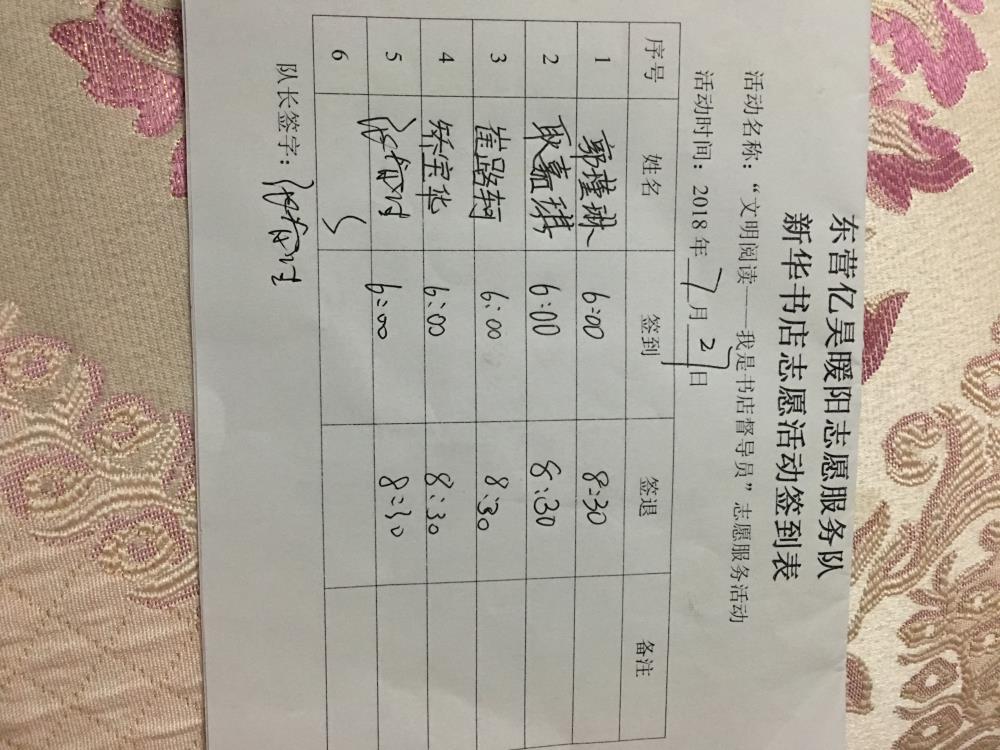 东营亿昊暖阳志愿服务队
新华书店志愿活动签到表
活动名称：“文明阅读——我是书店督导员”志愿服务活动
活动时间：2018年7月2日
序号 姓名 签到 签退 备注
1 郭瑾琳 6:00 8:30
2 耿嘉琪 6:00 8:30
3 崔路轲 6:00 8:30
4 矫宝华 6:00 8:30
5 6:00 8:30
6
队长签字：